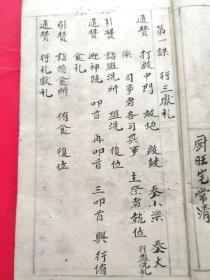 第一課 行三獻礼
通贊 打啟中門 放炮 鼓鼕 奏小樂 奏大
樂 司事者各司其事 主祭者就位 行盥洗礼
引贊 詣盥洗所 盥洗 復位
通贊 迎神跪 叩首 再叩首 三叩首 興 行侑
食礼
引贊 詣侑食所 侑食 復位
通贊 行礼獻礼
周旺宅常清